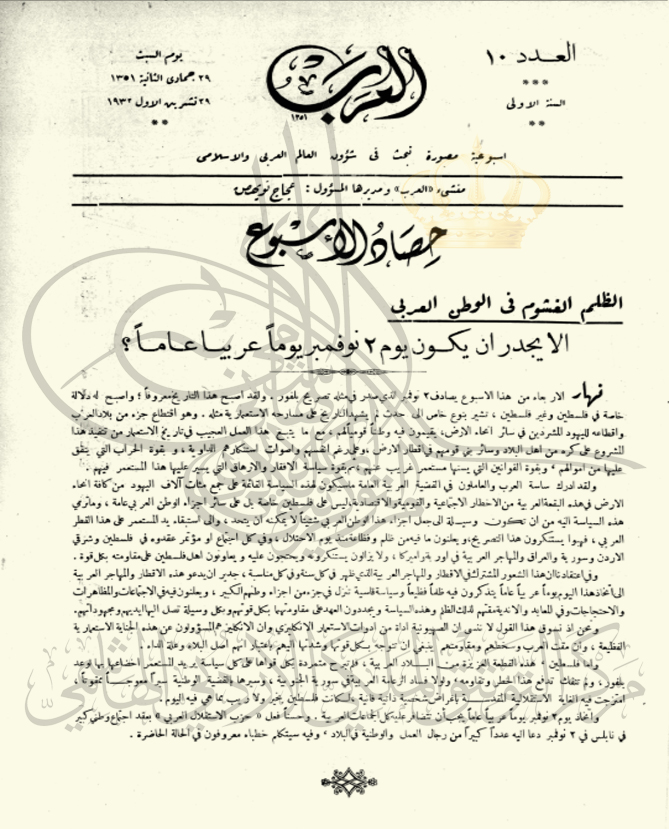 العـــدد ١٠
السنة الاولى
العرب
١٣٥١
يوم السبت
٢٩ جمادى الثانية ١٣٥١
٢٩ تشرين الاول ١٩٣٢
اسبوعية مصورة تبحث فى شؤون العالم العربى والاسلامى
منشىء «العرب» ومديرها المسؤول: عجاج نويهض
حصاد الأسبوع
الظلم الغشوم فى الوطن العربى
الا يجدر ان يكون يوم ٢ نوفمبر يوماً عربياً عاماً؟
نهار الاربعاء من هذا الاسبوع يصادف ٢ نوفمبر الذى صدر فى مثله تصريح بلفور. ولقد اصبح هذا التاريخ معروفاً؛ واصبح له دلالة
خاصة في فلسطين وغير فلسطين، تشير بنوع خاص الى حدث لم يشهد التاريخ على مسارحه الاستعمارية مثله. وهو اقتطاع جزء من بلاد العرب
واقطاعه لليهود المشردين في سائر انحاء الارض، يقيمون فيه وطناً قومياً لهم مع ما يتبع هذا العمل العجيب في تاريخ الاستعمار من تنفيذ هذا
المشروع على كره من اهل البلاد وسائر بني قومهم في اقطار الارض، وعلى رغم انفسهم واصوات استنكارهم الداوية، و بقوة الحراب التي ينفق
عليها من اموالهم، وبقوة القوانين التي يسنها مستعمر غريب عنهم، ثم بقوة سياسة الافقار والارهاق التي يسير عليها هذا المستعمر فيهم.
ولقد ادرك ساسة العرب والعاملون في القضية العربية العامة ما سيكون لهذه السياسة القائمة على جمع مئات آلاف اليهود من كافة انحاء
الارض في هذه البقعة العربية من الاخطار الاجتماعية والقومية والاقتصادية، ليس على فلسطين خاصة بل على سائر اجزاء الوطن العربي عامة، وما ترمي
هذه السياسة اليه من ان تكون وسيلة الى جعل اجزاء هذا الوطن العربي شتيتاً لا يمكنه ان يتحد، والى استبقاء يد المستعمر على هذا القطر
العربي، فهبوا يستنكرون هذا التصريح، ويعلنون ما فيه من ظلم وفظاعة منذ يوم الاحتلال، وفي كل اجتماع او مؤتمر عقدوه في فلسطين وشرقي
الاردن وسورية والعراق والمهاجر العربية في اوربة واميركا، ولا يزالون يستنكرونه ويحتجون عليه و يعاونون اهل فلسطين على مقاومته بكل قوة.
وفي اعتقادنا ان هذا الشعور المشترك في الاقطار والمهاجر العربية الذي ظهر في كل سنة وفي كل مناسبة، جدير ان يدعو هذه الاقطار والمهاجر العربية
الى اتخاذ هذا اليوم يوماً عربياً عاماً يتذكرون فيه ظلماً فظيعاً وسياسة قاسية تنزل في جزء من اجزاء وطنهم الكبير، ويعلنون فيه في الاجتماعات والمظاهرات
والاحتجاجات وفي المعابد والاندية مقتهم لذلك الظلم وهذه السياسة ويجددون العهد على مقاومتهما بكل قوتهم وبكل وسيلة تصل اليها ايديهم ومجهوداتهم.
ونحن اذ نسوق هذا القول لا ننسى ان الصهيونية اداة من ادوات الاستعمار الانكليزي وان الانكليز هم المسؤولون عن هذه الجناية الاستعمارية
الفظيعة، وان مقت العرب وسخطهم ومقاومتهم ينبغي ان تتوجه بكل قوتها وشدتها اليهم باعتبار انهم اصل البلاء وعلة الداء.
واما فلسطين، هذه القطعة العزيزة من البــلاد العربية، فلم تبرح متمردة بكل قواها على كل سياسة يريد المستعمر اخضاعها بها لوعد
بلفور، ولم تنفك تدفع هذا الخطر وتقاومه، ولولا فساد الزعامة العربية في سورية الجنوبية، وسيرها بالقضية الوطنية سيراً معوجاً
امتزجت فيه الغاية الاستقلالية المقدسة باغراض شخصية ذاتية فانية لكانت فلسطين بخير ولا ريب مما هي فيه اليوم.
واتخاذ يوم ٢ نوفمبر يوماً عربياً عاماً يجب أن تتضافر عليه كل الجماعات العربية. وحسناً فعل «حزب الاستقلال العربي» بعقد اجتماع وطني كبير
في نابلس في ٢ نوفمبر دعا اليه عدداً كبيراً من رجال العمل والوطنية في البلاد، وفيه سيتكلم خطباء معروفون في الحالة الحاضرة.